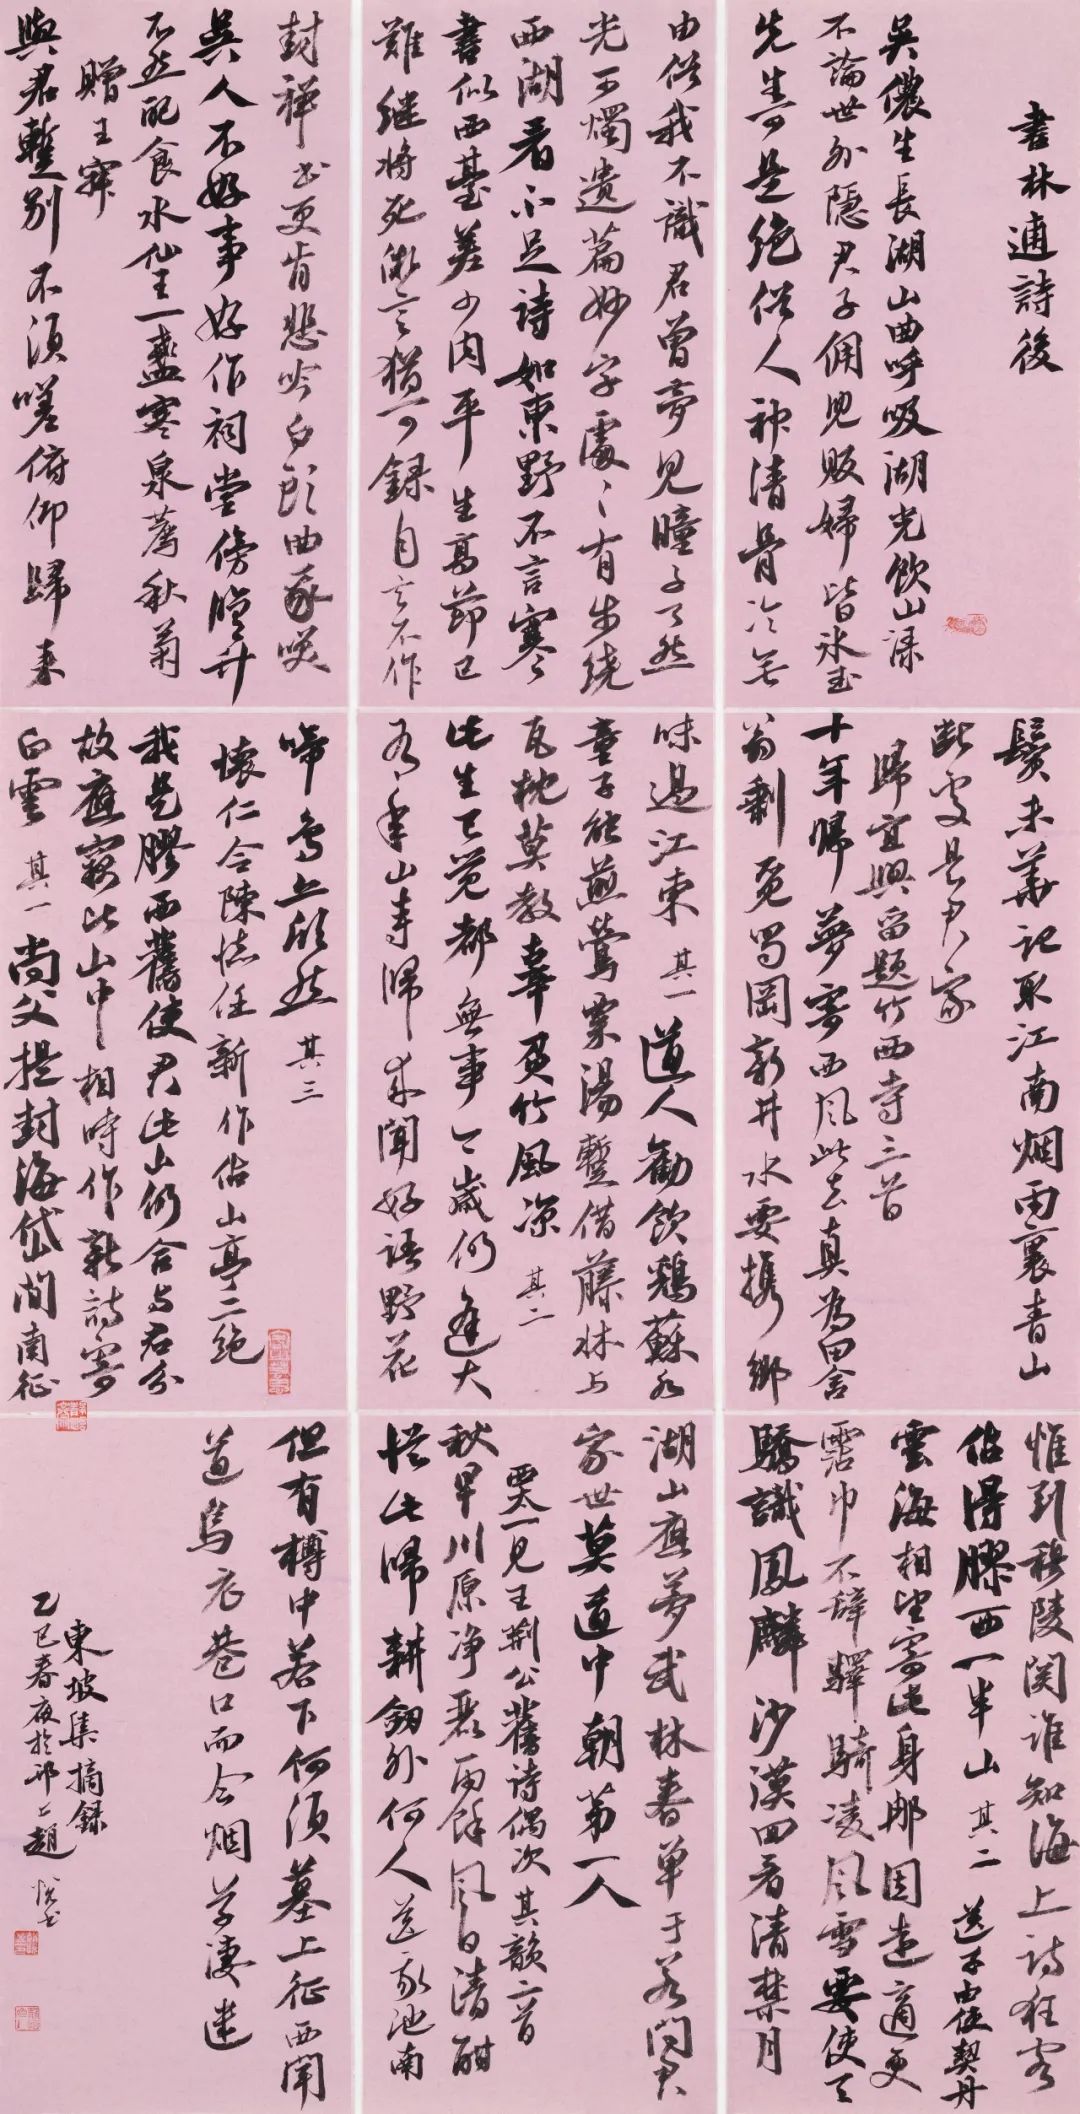 書林逋詩後
吳儂生長湖山曲呼吸湖光飲山淥
不論世外隱君子傭兒販婦皆冰玉
先生可是絕俗人神清骨冷無
由俗我不識君曾夢見瞳子了然
光可燭遺篇妙字處々有步繞
西湖看不足詩如東野不言寒
書似西臺差少肉平生高節已
難繼將死微言猶可錄自言不作
封禪書更肯悲吟白頭曲我笑
吳人不好事好作祠堂傍脩竹
不然配食水仙王一盞寒泉薦秋菊
贈王寂
與君暫別不須嗟俯仰歸來
鬢未華記取江南烟雨裏青山
斷處是君家
歸宜興留題竹西寺三首
十年歸夢寄西風此去真為田舍
翁剩覓蜀岡新井水要攜鄉
味過江東 其一 道人勸飲雞蘇水
童子能煎鶯粟湯暫借藤牀與
瓦枕莫教辜負竹風涼 其二
此生已覺都無事今歲仍逢大
有年山寺歸來聞好語野花
啼鳥亦欣然 其三
懷仁令陳德任新作佔山亭二絕
我是膠西舊使君此山仍合與君分
故應竊比山中相時作新詩寄
白雲 其一 尚父提封海岱間南征
惟到穆陵関誰知海上詩狂客
佔得膠西一半山 其二 送子由使契丹
雲海相望寄此身那因遠適更
霑巾不辭驛騎凌風雪要使天
驕識鳳麟沙漠回看清禁月
湖山應夢武林春單于若問君
家世莫道中朝第一人
西太一見王荊公舊詩偶次其韻二首
秋早川原淨麗雨餘風日清酣
從此歸耕劍外何人送我池南
但有樽中若下何須墓上征西聞
道烏衣巷口而今烟草淒迷
東坡集摘錄
乙巳春夜於邗上趙